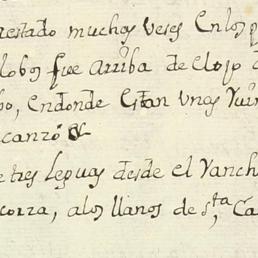 restado muchas veses en los p
lobos fue arriba de el ojo d
bo, en donde estan unas rui
canzó &
e tres leguas desde el Ranch
corra, a los llanos de S.ta Ca